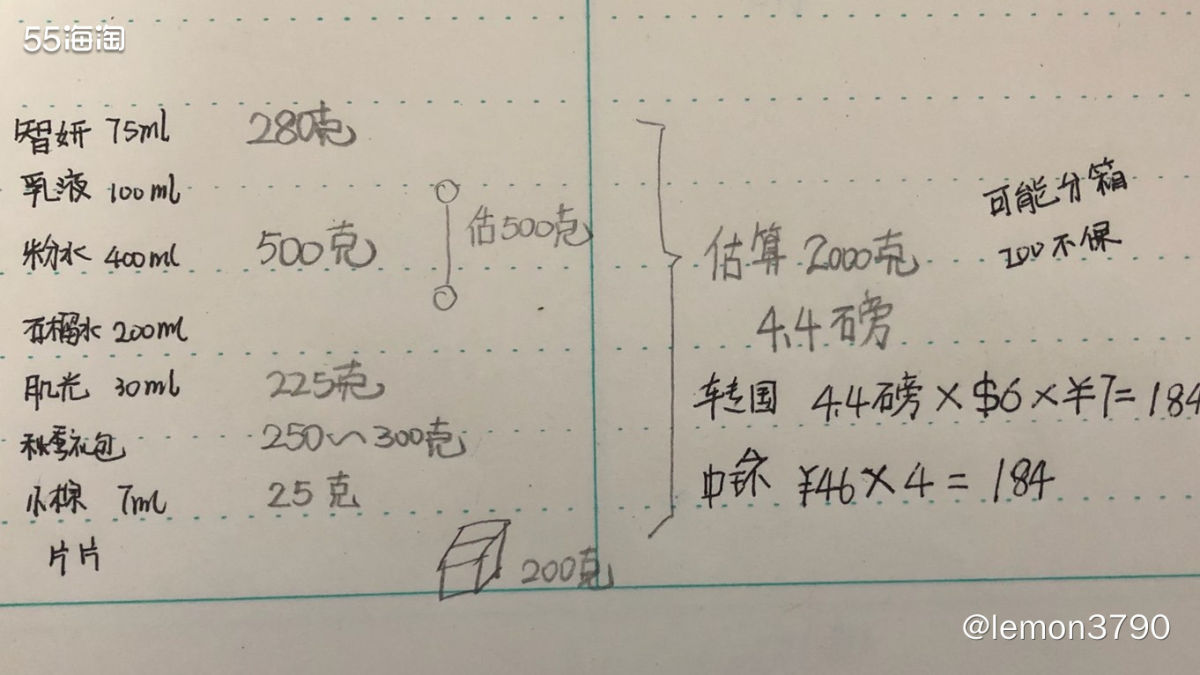 55海淘
智妍 75ml 280克
乳液 100ml
估500克
粉水 400ml 500克
石榴水 200ml
肌光 30ml 225克
秋季礼包 250~300克
小棕 7ml 25克
片片
200克
可能分箱
200不保
估算 2000克
4.4磅
转运国 4.4磅×$6×¥7=184
中环 ¥46×4=184
@lemon3790